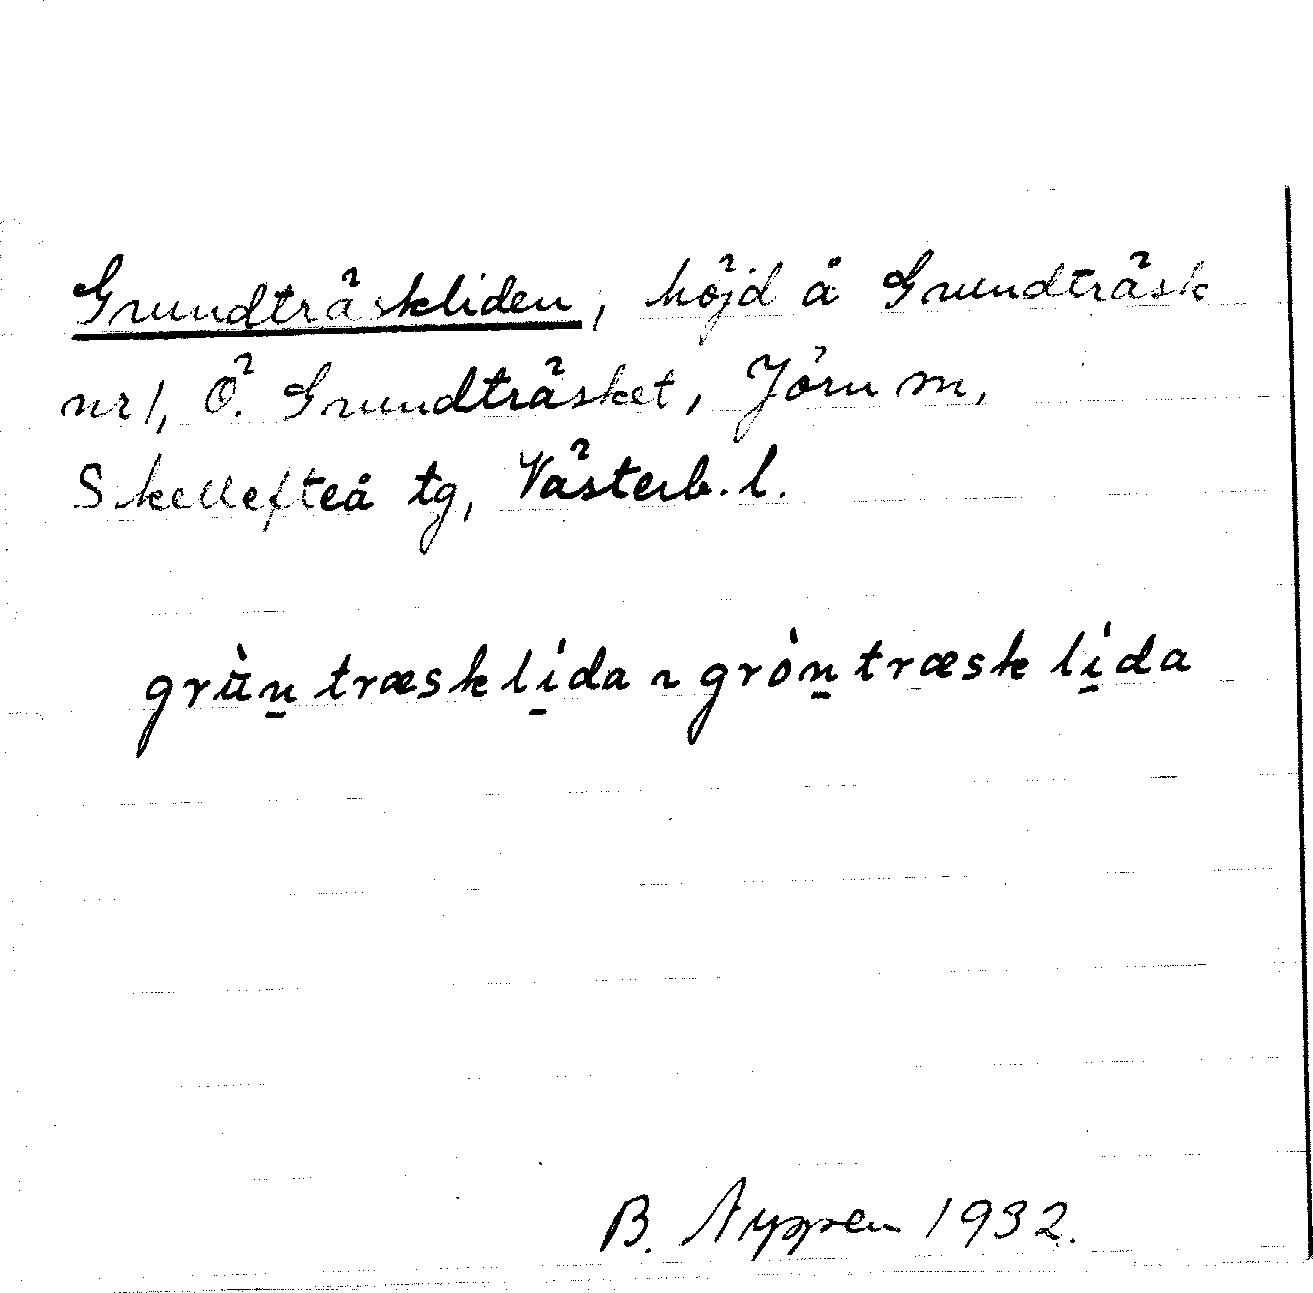 Grundträskliden, höjd å Grundträsk
nr 1, Ö. Grundträsket, Jörn m,
Skellefteå tg, Västerb. l.
grùn̲træsklí̲da ~ gròn̲træsklí̲da
B. 1932.